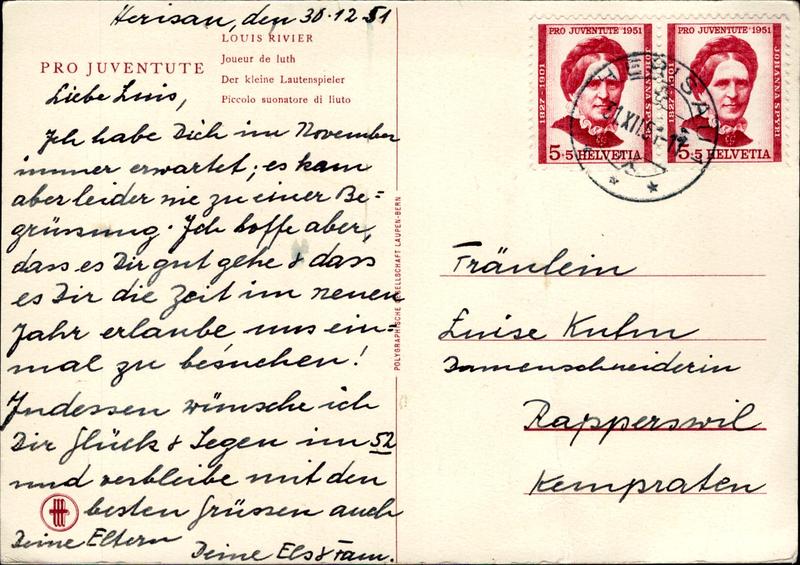 Herisau, den 30.12.51
LOUIS RIVIER
Joueur de luth
Der kleine Lautenspieler
Piccolo suonatore di liuto
PRO JUVENTUTE
Liebe Luis,
Ich habe Dich im November
immer erwartet; es kam
aber leider nie zu einer Be=
grüssung. Ich hoffe aber,
dass es Dir gut gehe & dass
es Dir die Zeit im neuen
Jahr erlaube uns ein=
mal zu besuchen!
Indessen wünsche ich
Dir Glück & Segen im 52
und verbleibe mit den
besten Grüssen auch
Deine Eltern
Deine Els & Fam.
POLYGRAPHISCHE GESELLSCHAFT LAUPEN-BERN
PRO JUVENTUTE 1951
1827-1901
JOHANNA SPYRI
5+5 HELVETIA
PRO JUVENTUTE 1951
1827-1901
JOHANNA SPYRI
5+5 HELVETIA
HERISAU
31.XII.51
Fräulein
Luise Kuhn
Damenschneiderin
Rapperswil
Kempraten